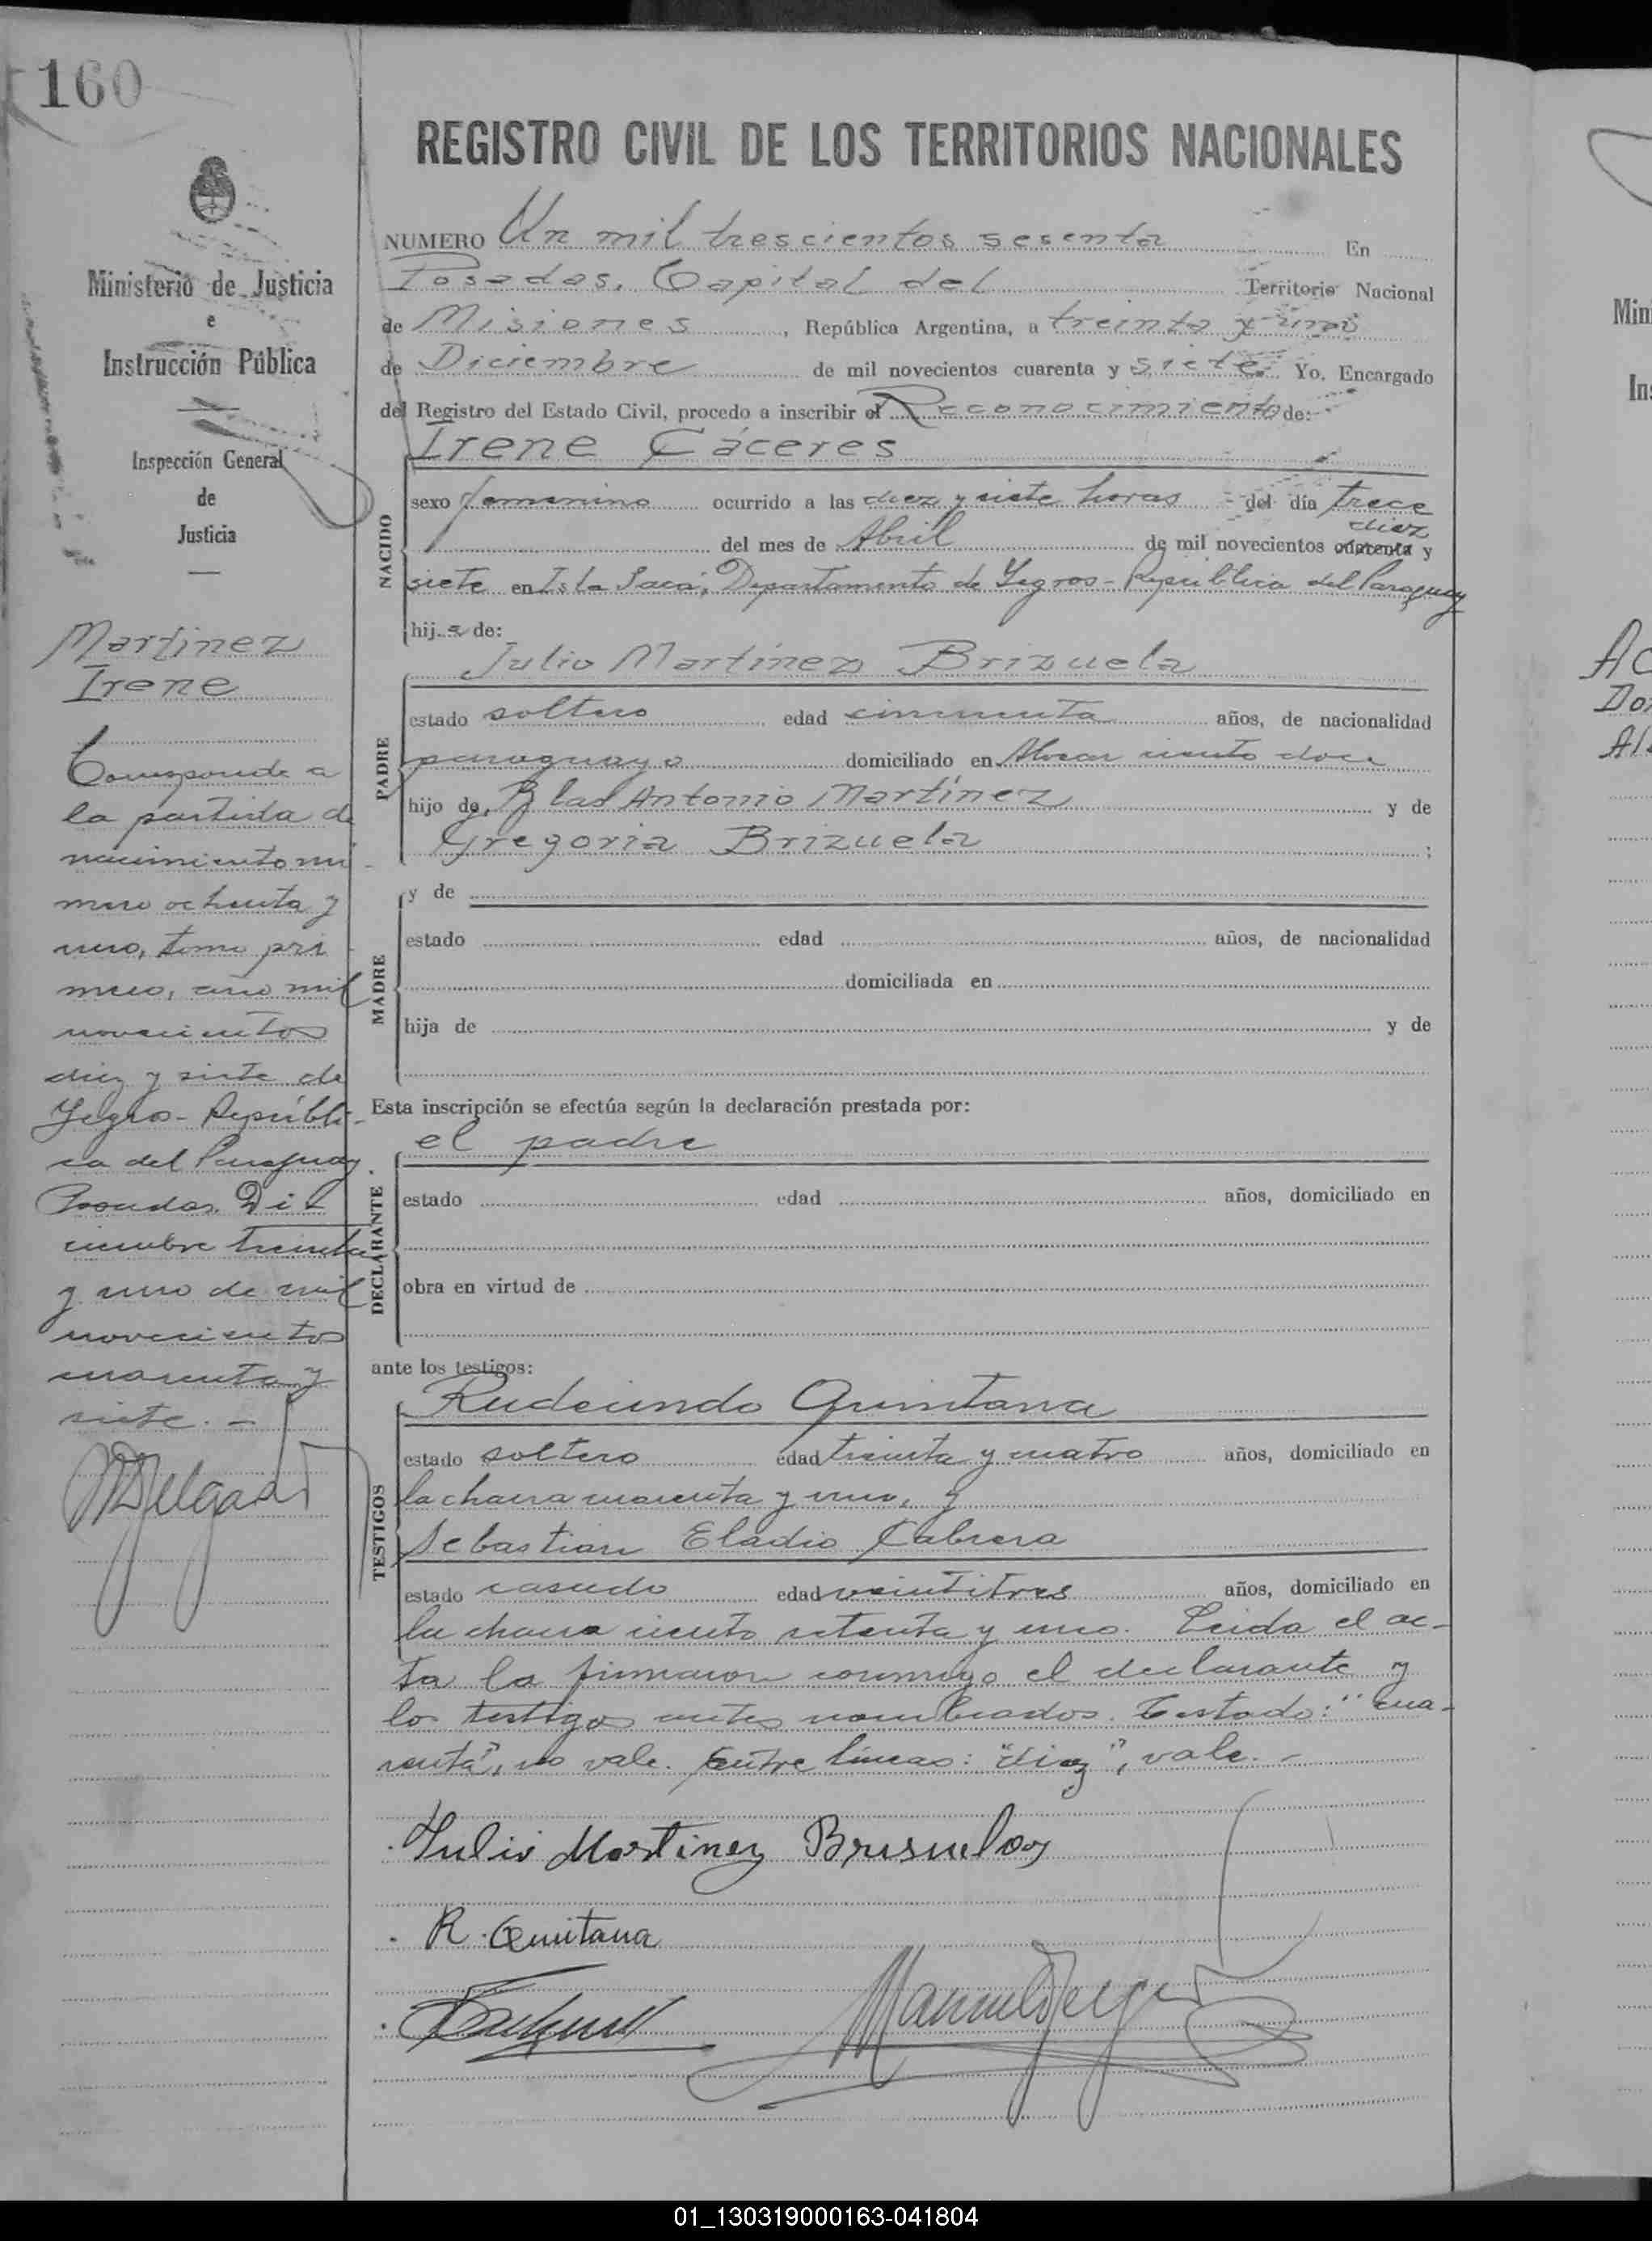 160
Ministerio de Justicia
e
Instrucción Pública
Inspección General
de
Justicia
Martinez
Irene
Corresponde a
la partida de
nacimiento nú
mero ochenta y
uno, tomo pri
mero, año mil
novecientos
diez y siete de
Yegros - Repúbli-
ca del Paraguay.
Posadas, Di
ciembre treinta
y uno de mil
novecientos
cuarenta y
siete. -
MDelgado
REGISTRO CIVIL DE LOS TERRITORIOS NACIONALES
NUMERO Un mil trescientos sesenta En
Posadas, Capital del Territorio Nacional
de Misiones, República Argentina, a treinta y uno
de Diciembre de mil novecientos cuarenta y siete. Yo, Encargado
del Registro del Estado Civil, procedo a inscribir el Reconocimiento de:
Irene Cáceres
NACIDO
sexo femenino ocurrido a las diez y siete horas del día trece
diez
del mes de Abril de mil novecientos cuarenta y
siete en Isla Sacá, Departamento de Yegros - República del Paraguay
hija de:
Julio Martínez Brizuela
PADRE
estado soltero edad cincuenta años, de nacionalidad
paraguaya domiciliado en Alvear ciento doce
hijo de Blas Antonio Martínez y de
Gregoria Brizuela ;
MADRE
y de
estado edad años, de nacionalidad
domiciliada en
hija de y de
Esta inscripción se efectúa según la declaración prestada por:
el padre
DECLARANTE
estado edad años, domiciliado en
obra en virtud de
ante los testigos:
Rudecindo Quintana
TESTIGOS
estado soltero edad treinta y cuatro años, domiciliado en
la chacra cuarenta y uno, y
Sebastian Eladio Cabrera
estado casado edad veintitres años, domiciliado en
la chacra ciento setenta y uno. Leida el ac-
ta la firmaron conmigo el declarante y
los testigos antes nombrados. Testado: "cua-
renta", no vale. Entre líneas: "diez", vale. -
Julio Martinez Brisuela
R. Quintana
Manuel Delgado
Min
In
Ac
Do
Al
01_130319000163-041804